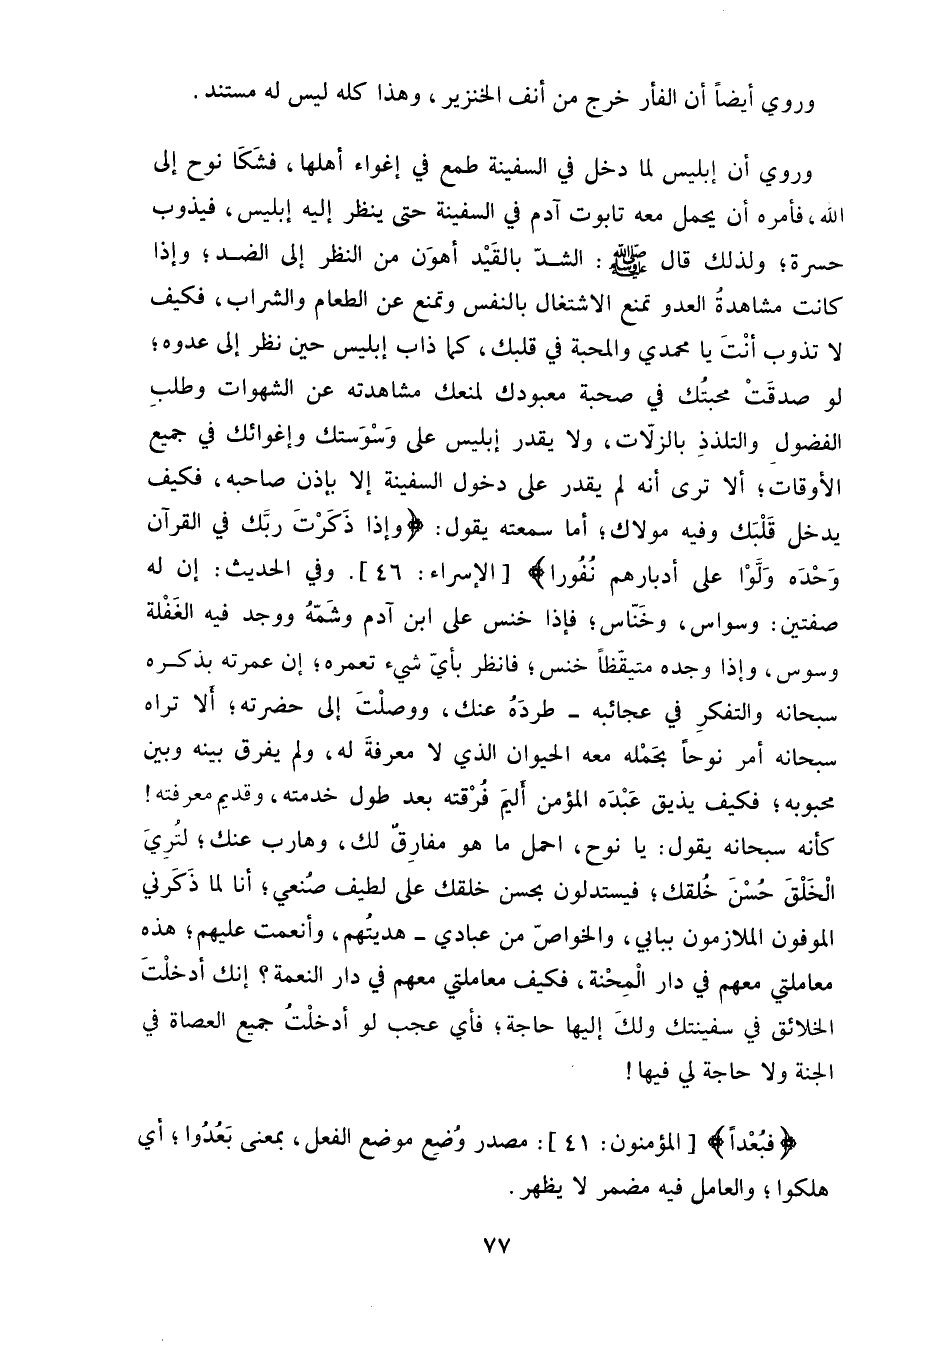 وروي أيضاً أن الفأر خرج من أنف الخنزير، وهذا كله ليس له مستند.
وروي أن إبليس لما دخل في السفينة طمع في إغواء أهلها، فشَكَا نوح إلى
الله، فأمره أن يحمل معه تابوت آدم في السفينة حتى ينظر إليه إبليس، فيذوب
حسرة؛ ولذلك قال ﷺ: الشدّ بالقَيْد أهوَن من النظر إلى الضد؛ وإذا
كانت مشاهدةُ العدو تمنع الاشتغال بالنفس وتمنع عن الطعام والشراب، فكيف
لا تذوب أنْتَ يا محمدي والمحبة في قلبك، كما ذاب إبليس حين نظر إلى عدوه؛
لو صدقَتْ محبتُك في صحبة معبودك لمنعك مشاهدته عن الشهوات وطلبِ
الفضول والتلذذِ بالزلّات، ولا يقدر إبليس على وَسْوَستك وإغوائك في جميع
الأوقات؛ ألا ترى أنه لم يقدر على دخول السفينة إلا بإذن صاحبه، فكيف
يدخل قَلْبَك وفيه مولاك؛ أما سمعته يقول: ﴿وإذا ذَكَرْتَ ربَّك في القرآن
وَحْدَه وَلَّوْا على أدبارهم نُفُورا﴾ [الإسراء: ٤٦]. وفي الحديث: إن له
صفتين: وسواس، وخَنّاس؛ فإذا خنس على ابن آدم وشَمّهُ ووجد فيه الغَفْلة
وسوس، وإذا وجده متيقّظاً خنس؛ فانظر بأيّ شيء تعمره؛ إن عمرته بذكره
سبحانه والتفكرِ في عجائبه - طردَهُ عنك، ووصلْتَ إلى حضرته؛ أَلا تراه
سبحانه أمر نوحاً بحَمْله معه الحيوان الذي لا معرفةَ له، ولم يفرق بينه وبين
محبوبه؛ فكيف يذيق عَبْدَه المؤمن أَليمَ فُرْقته بعد طول خدمته، وقديم معرفته!
كأنه سبحانه يقول: يا نوح، احمل ما هو مفارقٌ لك، وهارب عنك؛ لتُرِيَ
الْخَلْقَ حُسْنَ خُلقك؛ فيستدلون بحسن خلقك على لطيف صُنعي؛ أنا لما ذَكَرني
الموفون الملازمون ببابي، والخواصّ من عبادي - هديتُهم، وأنعمت عليهم؛ هذه
معاملتي معهم في دار الْمِحْنة، فكيف معاملتي معهم في دار النعمة؟ إنك أدخلْتَ
الخلائق في سفينتك ولكَ إليها حاجة؛ فأي عجب لو أدخلْتُ جميع العصاة في
الجنة ولا حاجة لي فيها!
﴿فبُعْداً﴾ [المؤمنون: ٤١]: مصدر وُضِع موضع الفعل، بمعنى بَعُدُوا؛ أي
هلكوا؛ والعامل فيه مضمر لا يظهر.
٧٧